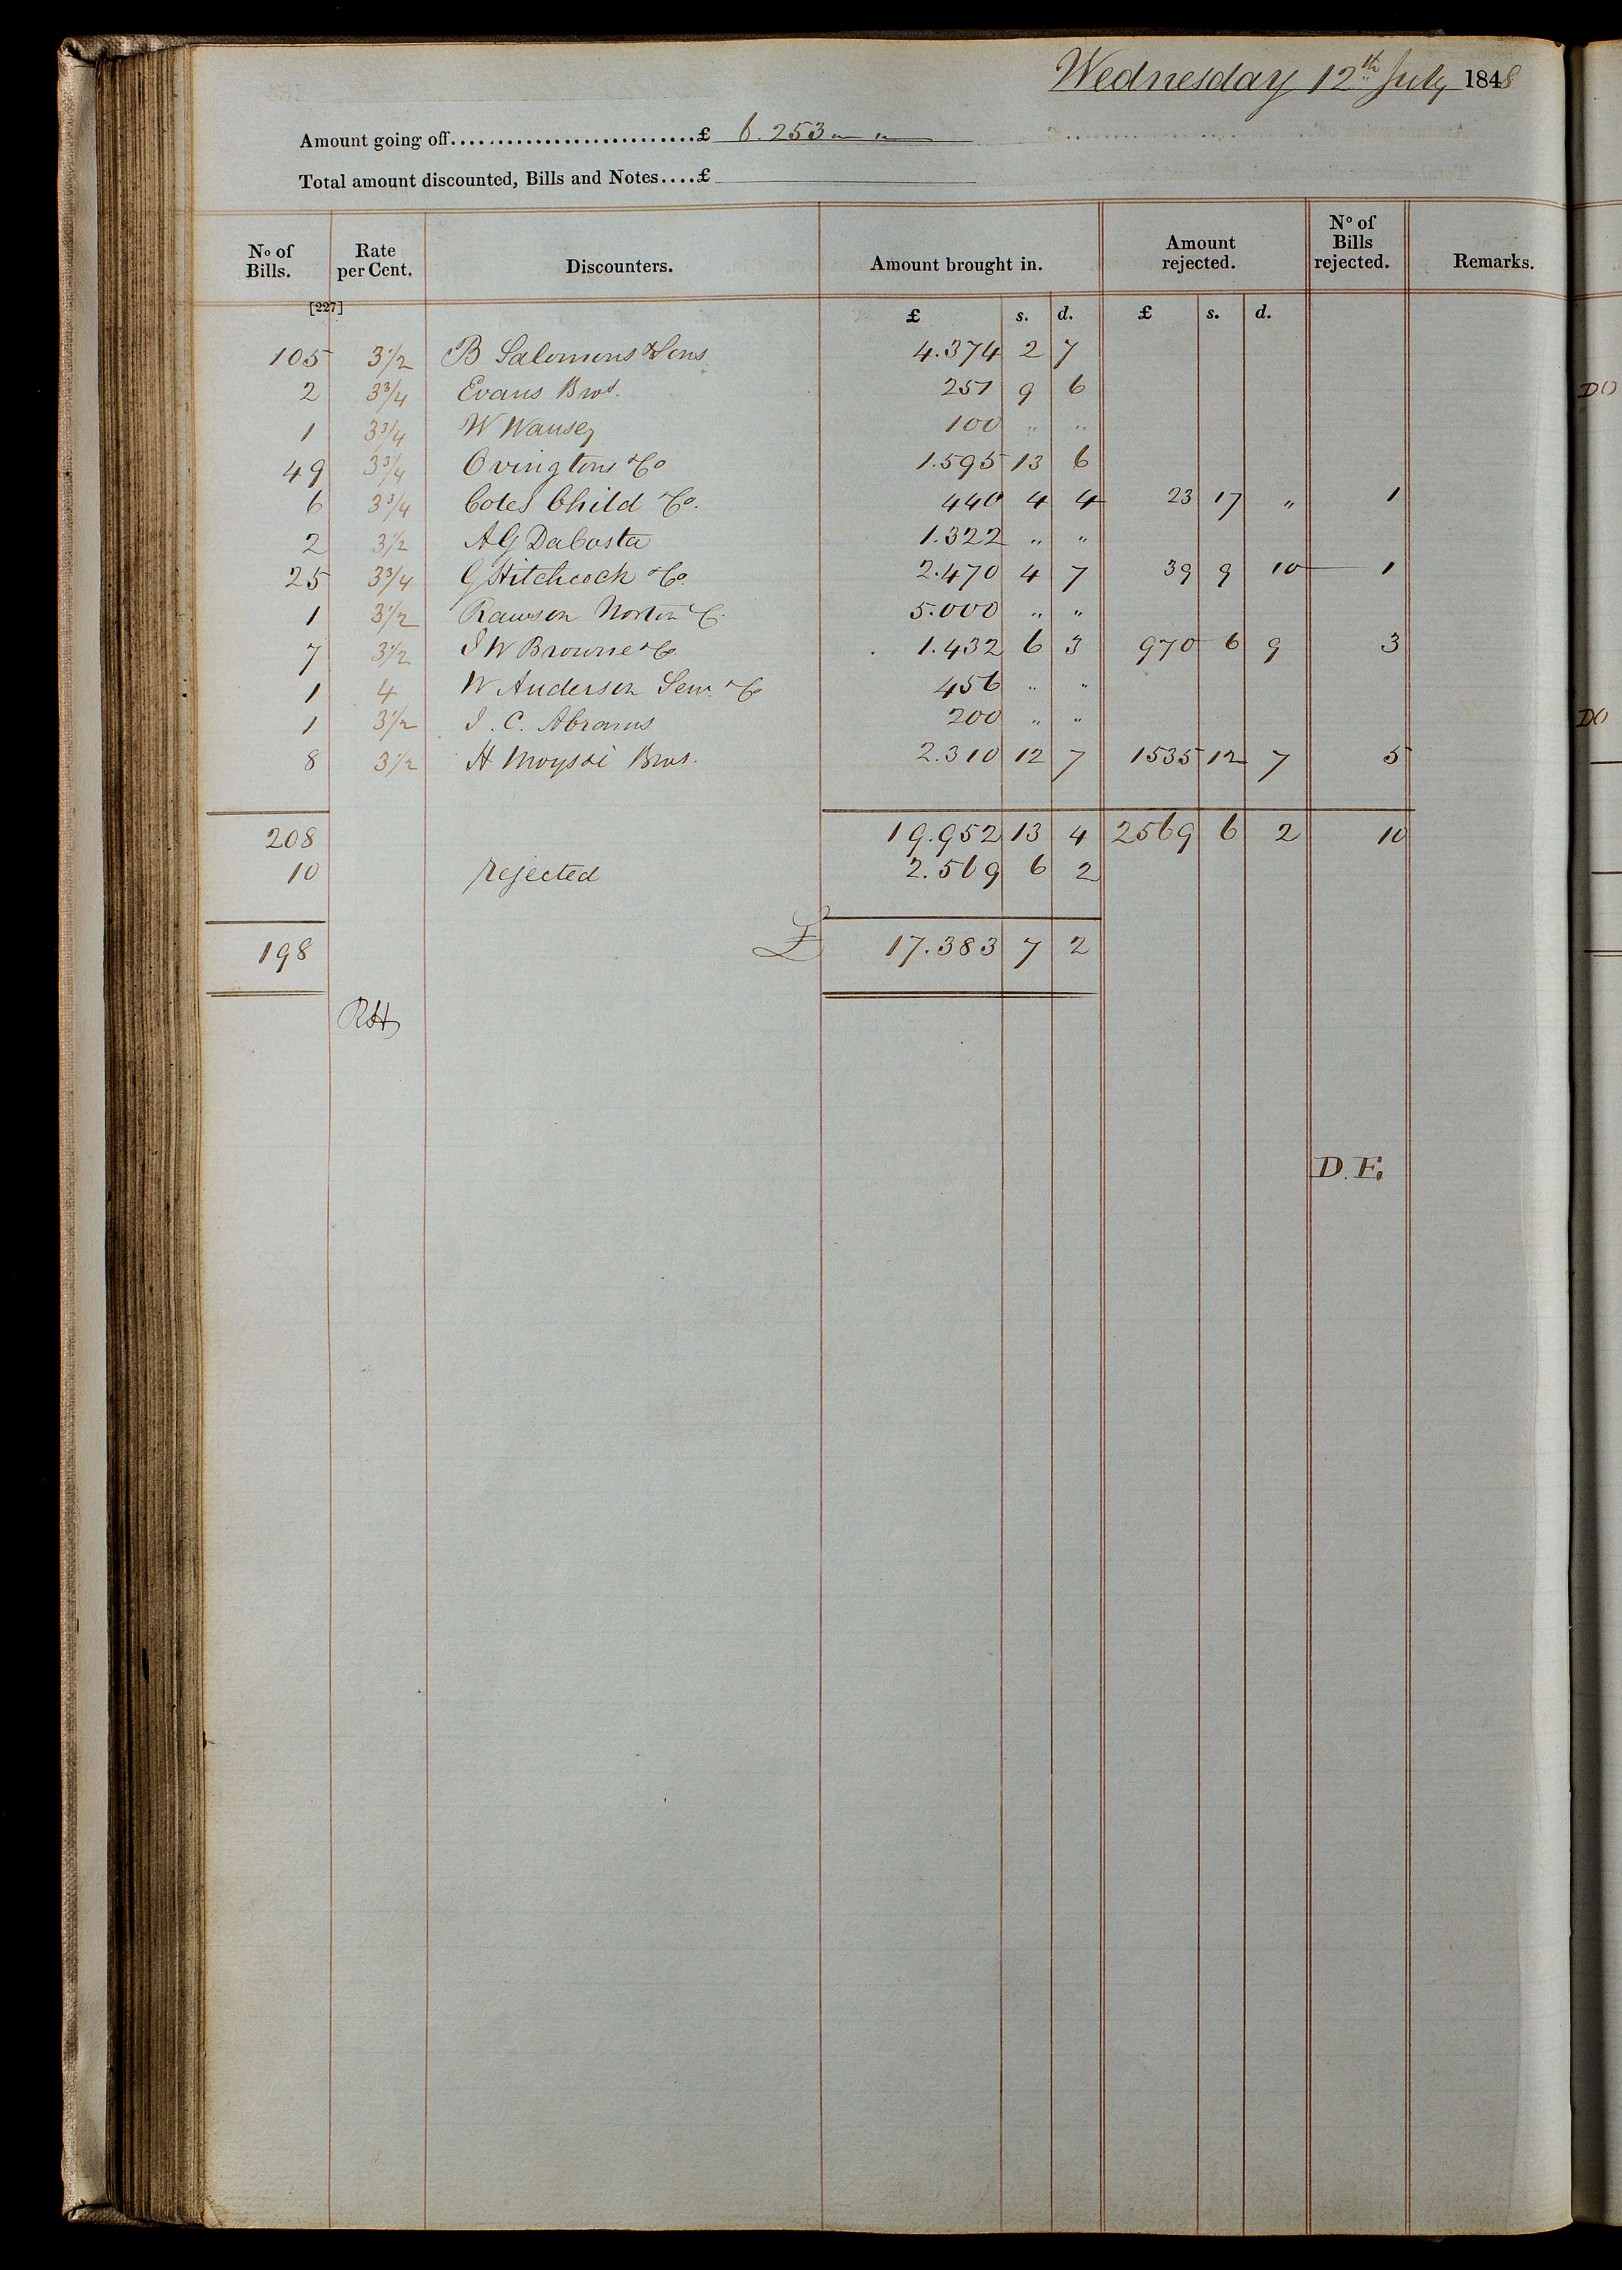 Wednesday 12th July 1848
Amount going off..........................£ 6.253 " "
Total amount discounted, Bills and Notes....£
No of Bills. Rate per Cent. Discounters. Amount brought in. Amount rejected. No of Bills rejected. Remarks.
[227] £ s. d. £ s. d.
105 3 1/2 B Salomons & Sons 4.374 2 7
2 3 3/4 Evans Bros. 251 9 6
1 3 3/4 W Wansey 100 " "
49 3 3/4 Ovingtons & Co 1.595 13 6
6 3 3/4 Coles Child & Co. 440 4 4 23 17 " 1
2 3 1/2 A G DaCosta 1.322 " "
25 3 3/4 G Hitchcock & Co 2.470 4 7 39 9 10 1
1 3 1/2 Rawson Norton & C. 5.000 " "
7 3 1/2 J W Browne & Co 1.432 6 3 970 6 9 3
1 4 W Anderson Sen. & Co 456 " "
1 3 1/2 J. C. Abrams 200 " "
8 3 1/2 H Bros. 2.310 12 7 1535 12 7 5
208 19.952 13 4 2569 6 2 10
10 rejected 2.569 6 2
198 £ 17.383 7 2
RH
D.E.
DO
DO